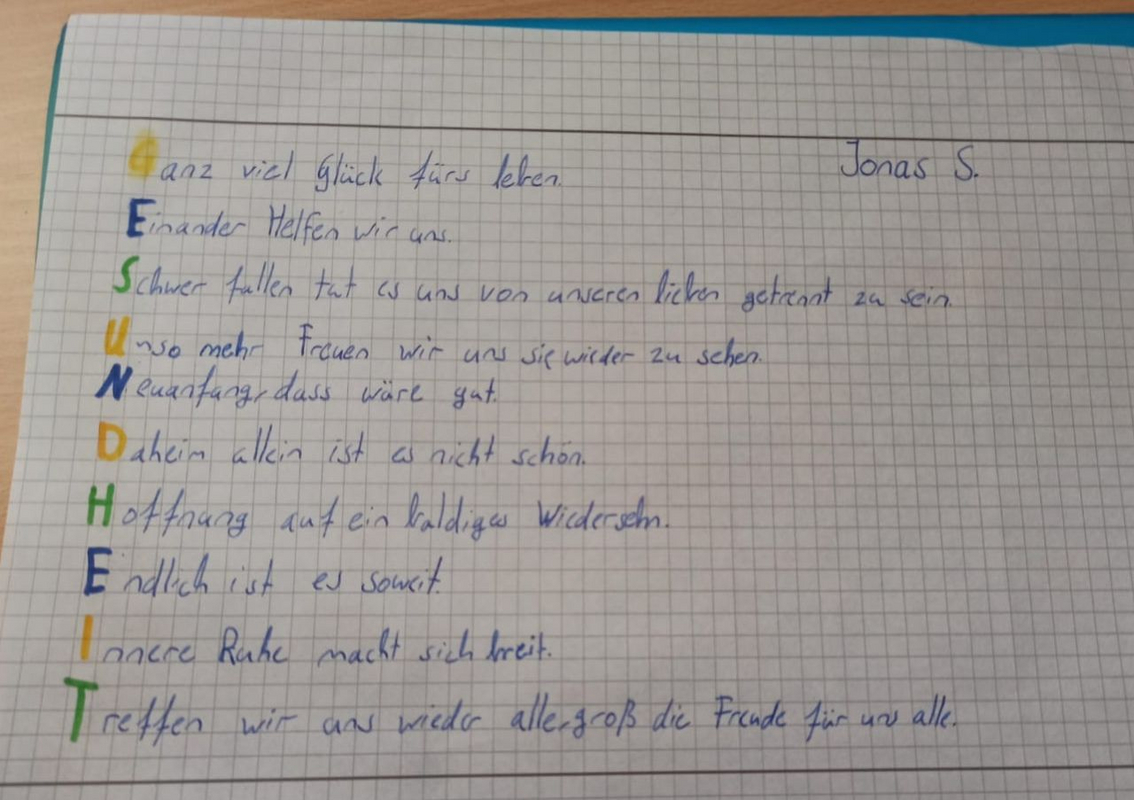 Ganz viel Glück fürs leben. Jonas S.
Einander Helfen wir uns.
Schwer fallen tut es uns von unseren lieben getrennt zu sein.
Umso mehr Freuen wir uns sie wieder zu sehen.
Neuanfang, dass wäre gut.
Daheim allein ist es nicht schön.
Hoffnung auf ein baldiges Wiedersehn.
Endlich ist es soweit.
Innere Ruhe macht sich breit.
Treffen wir uns wieder alle, groß die Freude für uns alle.